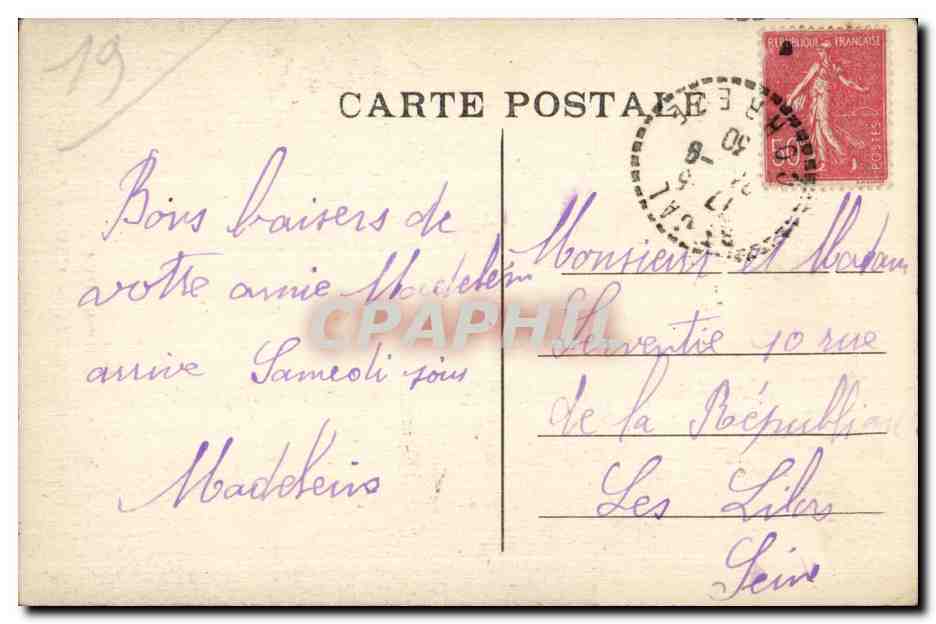 19
CARTE POSTALE
REPUBLIQUE FRANÇAISE
50
POSTES
CORREZE
30
17
Bons baisers de
votre amie Madelein
arrive Samedi sois
Madeleins
Monsieur et Madam
Serventie 10 rue
de la Républi
Les Lilas
Seine
CPAPHIL